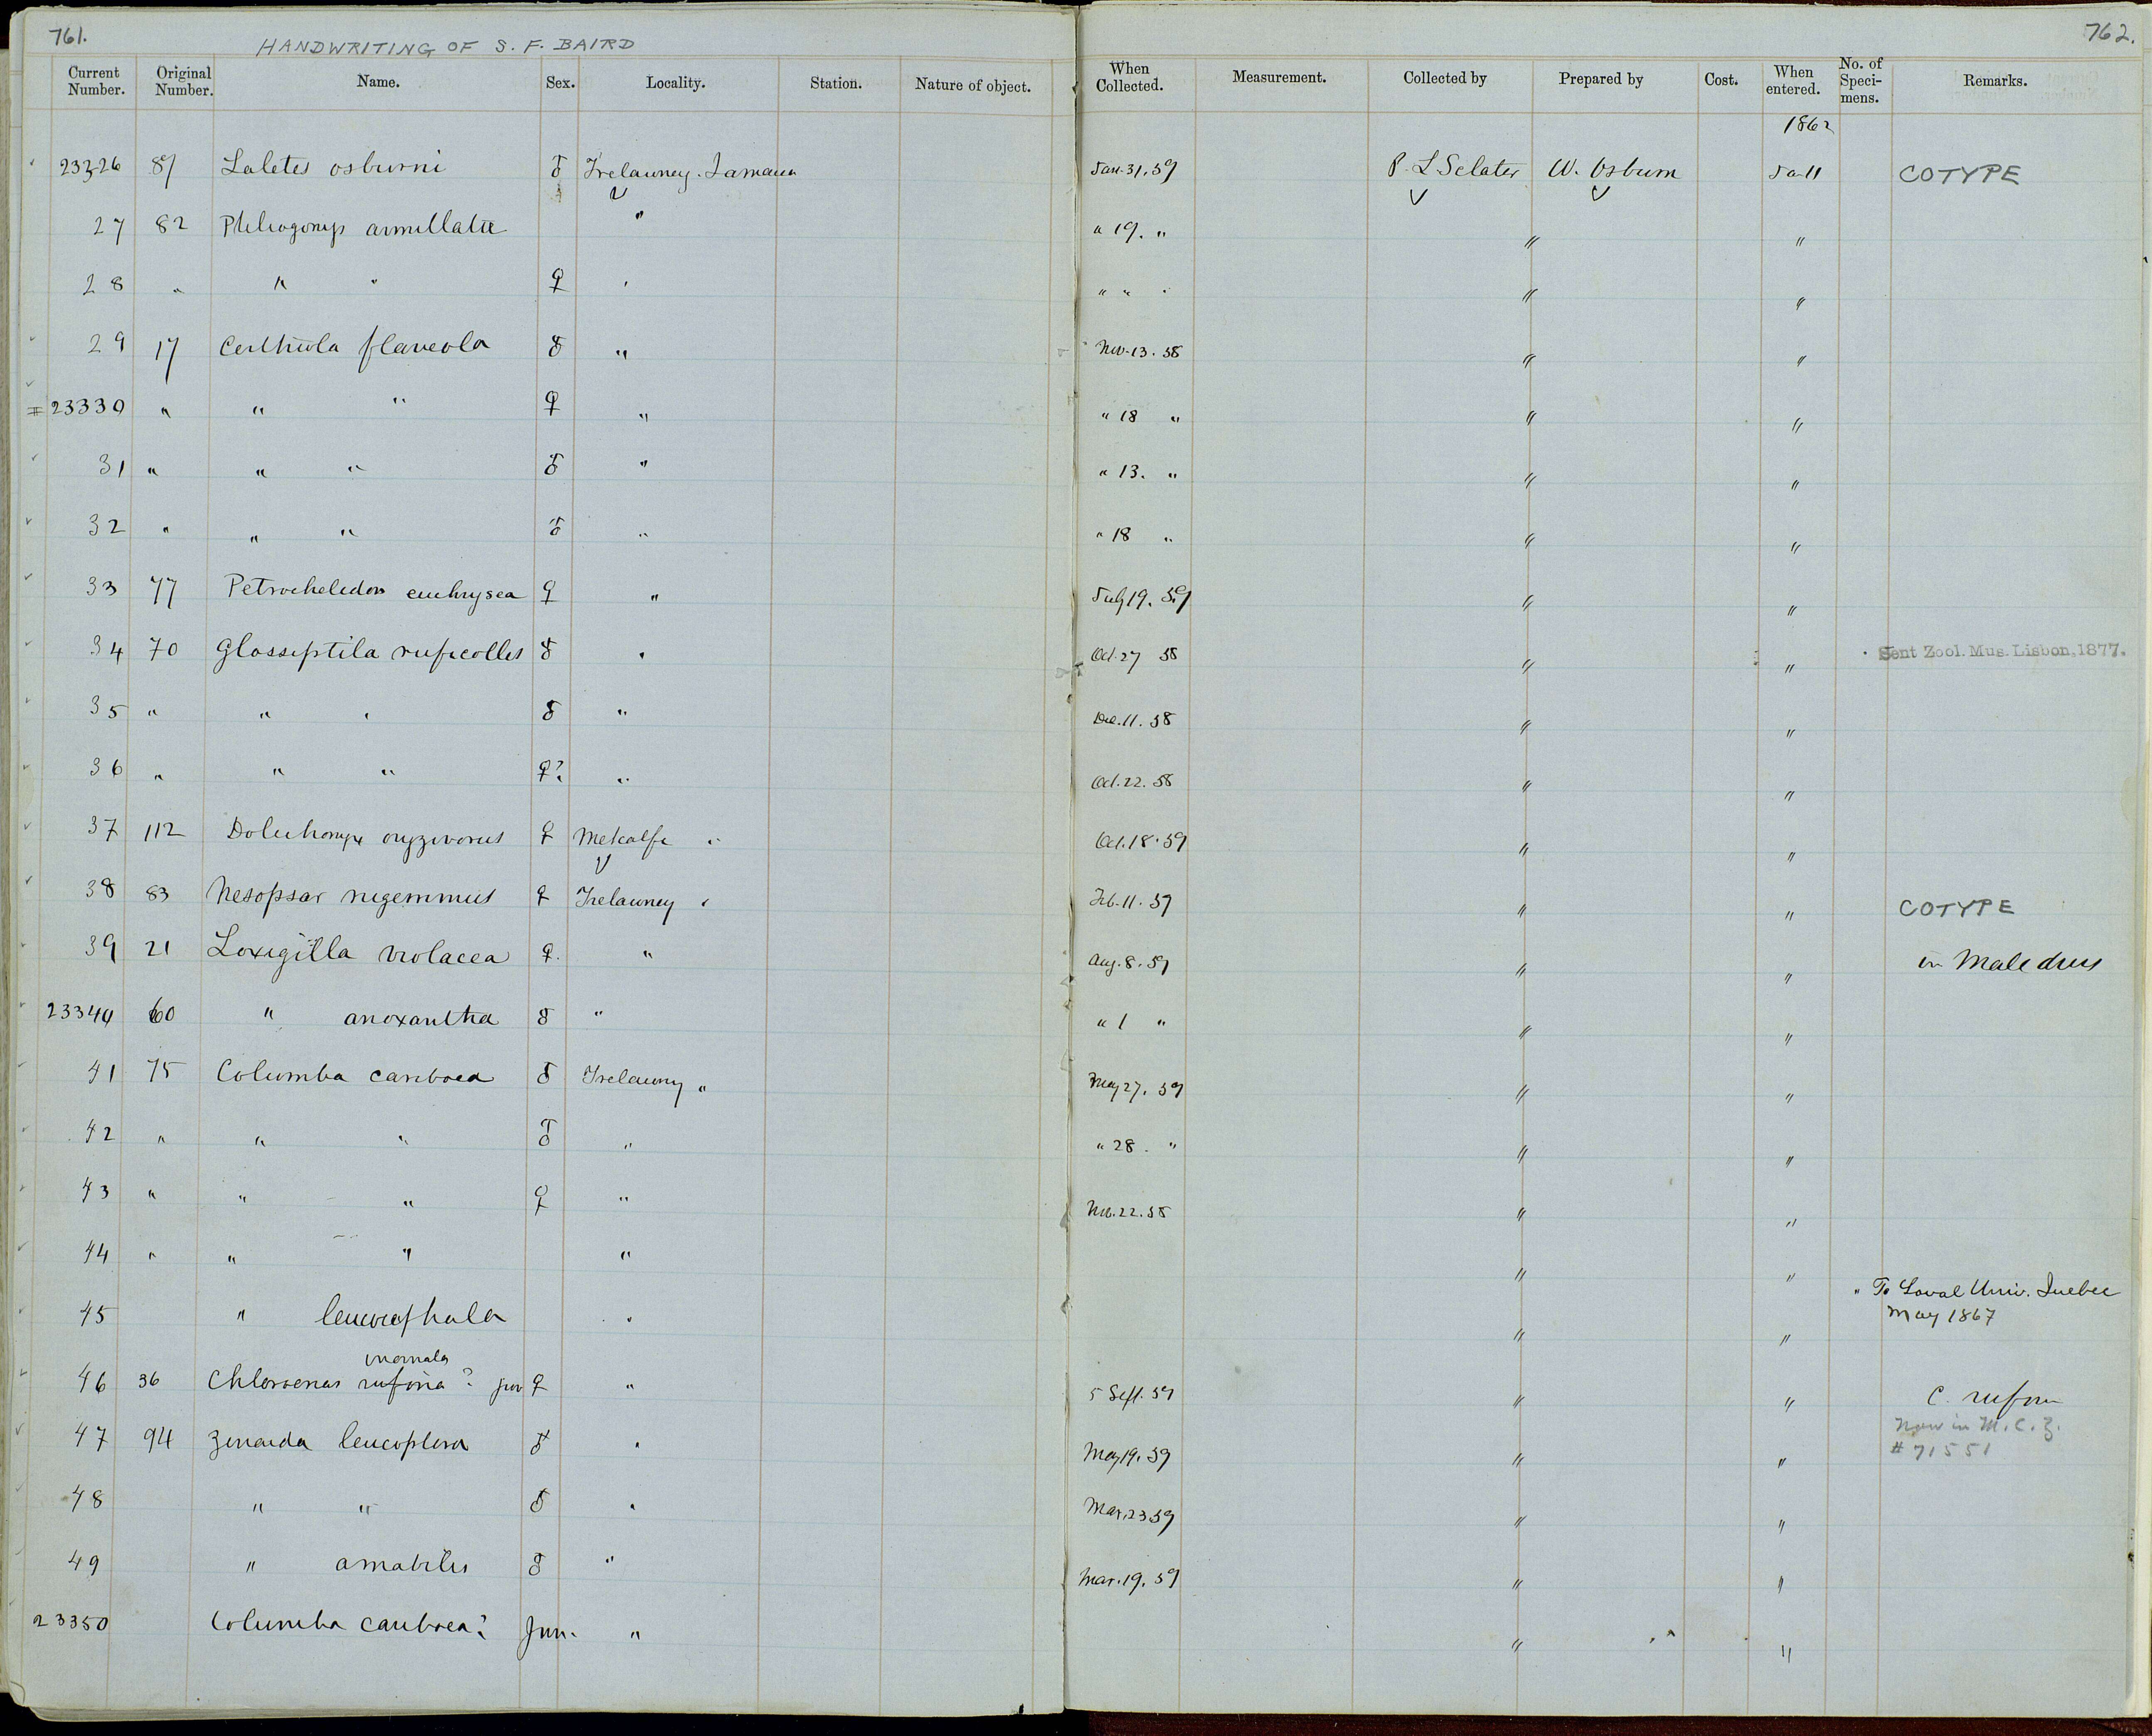 761. HANDWRITING OF S. F. BAIRD 762.
Current Number. Original Number. Name. Sex. Locality. Station. Nature of object. When Collected. Measurement. Collected by Prepared by Cost. When entered. No. of Specimens. Remarks.
1862
23326 87 Laletes osburni ♂ Trelawney. Jamaica Jan. 31. 59 P. L. Sclater W. Osburn Ja 11 COTYPE
27 82 armillata " " 19. " " "
28 " " " ♀ " " " " " "
29 17 Certhiola flaveola ♂ " Nov. 13. 58 " "
23330 " " " ♀ " " 18 " " "
31 " " " ♂ " " 13. " " "
32 " " " ♂ " " 18 " " "
33 77 Petrochelidon euchrysea ♀ " July 19. 59 " "
34 70 Glossiptila ruficollis ♂ " Oct. 27 58 " " Sent Zool. Mus. Lisbon, 1877.
35 " " " ♂ " Dec. 11. 58 " "
36 " " " ♀? " Oct. 22. 58 " "
37 112 Dolichonyx oryzivorus ♀ Metcalfe " Oct. 18. 59 " "
38 83 Nesopsar nigerrimus ♀ Trelawney " Feb. 11. 59 " " COTYPE
39 21 Loxigilla violacea ♀. " Aug. 8. 59 " " in Male dress
23340 60 " anoxantha ♂ " " 1 " " "
41 75 Columba cariboea ♂ Trelawny " May 27. 59 " "
42 " " " ♂ " " 28. " " "
43 " " " ♀ " Nov. 22. 58 " "
44 " " " " " "
45 " leucocephala " " " " To Laval Univ. Quebec
May 1867
inornata
46 36 Chloroenas rufina? juv ♀ " 5 Sept. 59 " " C. rufina
Now in M.C.Z.
# 71551
47 94 Zenaida leucoptera ♂ " May 19. 59 " "
48 " " ♂ " Mar. 23 59 " "
49 " amabilis ♂ " Mar. 19. 59 " "
23350 Columba cariboea? Juv. " " "